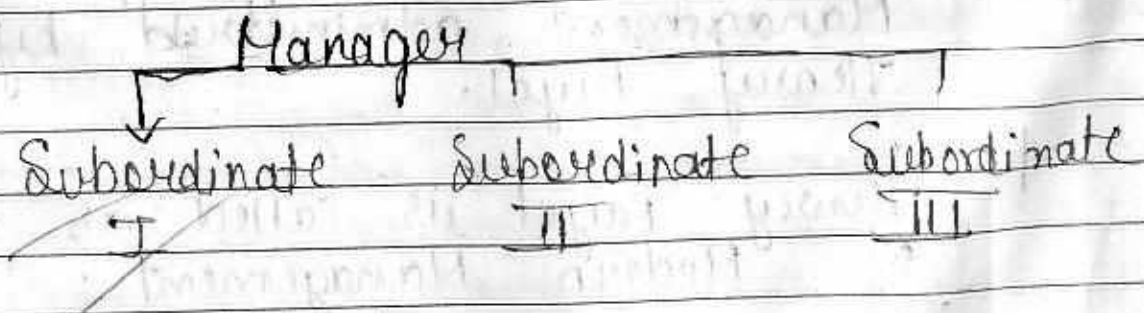 Manager
Subordinate Subordinate Subordinate
I II III